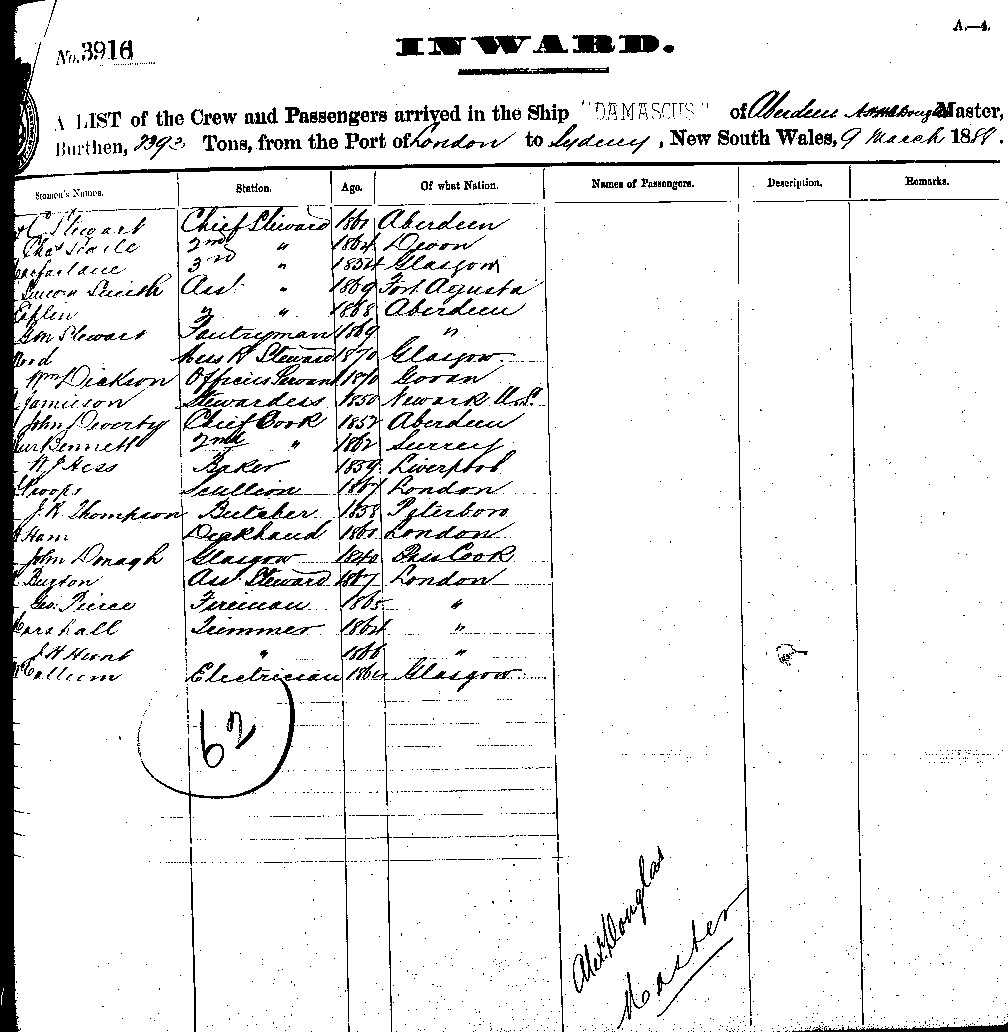 No. 3916
INWARD.
A.—4.
A LIST of the Crew and Passengers arrived in the Ship "DAMASCUS" of Aberdeen Master,
Burthen, Tons, from the Port of London to Sydney, New South Wales, 9 March 188
Seamen's Names. Station. Age. Of what Nation. Names of Passengers. Description. Remarks.
C Stewart Chief Steward Aberdeen
Chas 2nd " 1864 Devon
3rd " 1854 Glasgow
Smith Asst " 1869 Fort Agusta
" " 1868 Aberdeen
Stewart 1869 "
Mess R Steward 1870 Glasgow
Wm Dickson Officers Servan 1870 Govan
Jamieson Stewardess 1850 Newark U.S.
John Deverty Chief Cook 1852 Aberdeen
Bennett 2nd " 1862 Surrey
Hess Baker 1859 Liverpool
Troops Scullion 1867 London
J. R. Thompson Butcher 1858 Peterboro
Ham Deckhand London
John Donagh Glasgow 1840 Pass Cook
Buxton Asst Steward 1867 London
Geo. Pierce Fireman 1865 "
Marshall Trimmer 1864 "
J H Hunt " 1866 "
McCallum Electrician Glasgow
62
Alex Douglas
Master